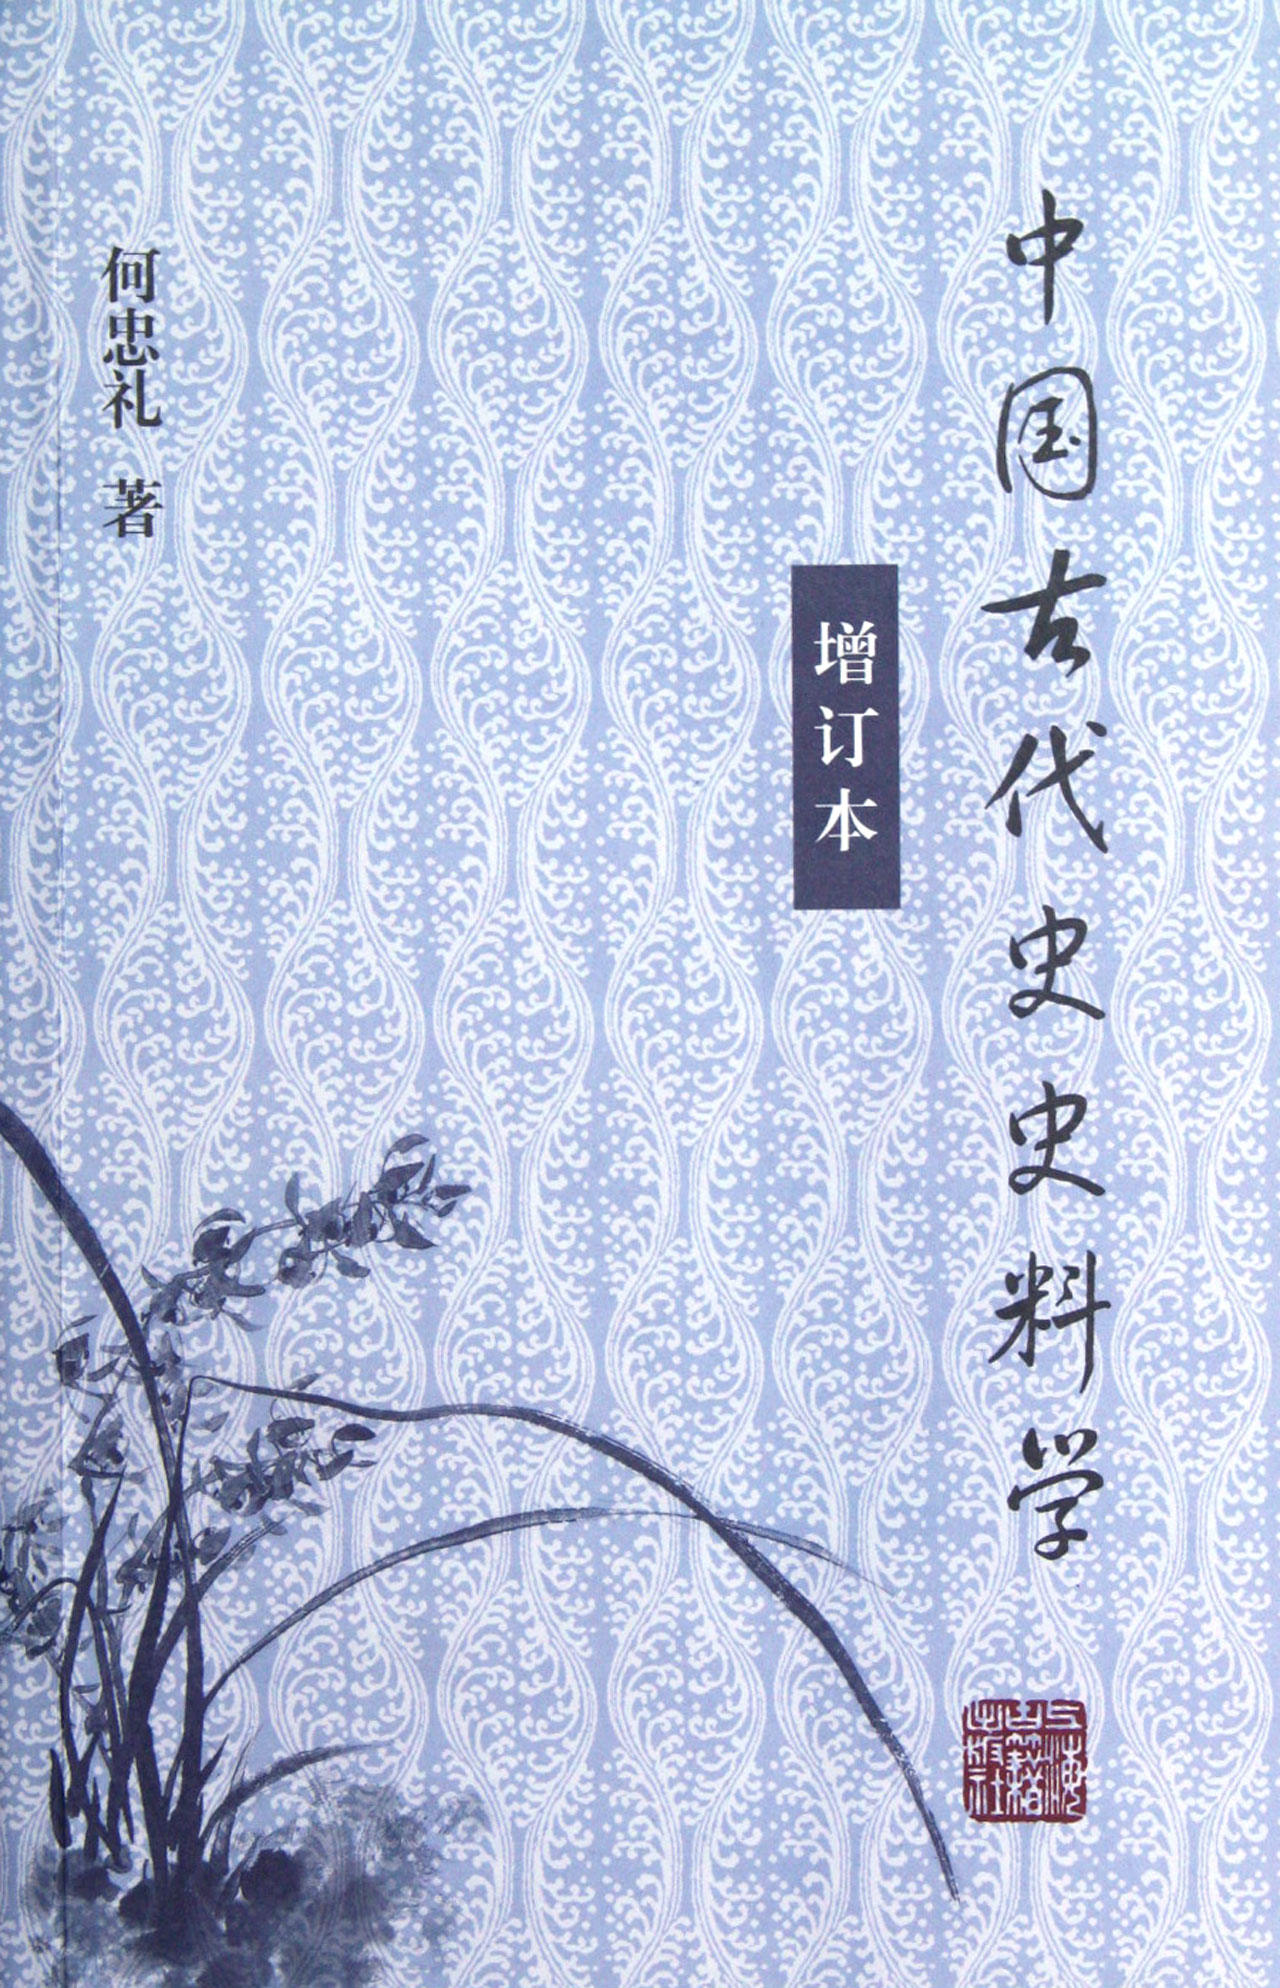 中国古代史史料学
增订本
何忠礼 著
上海古籍出版社